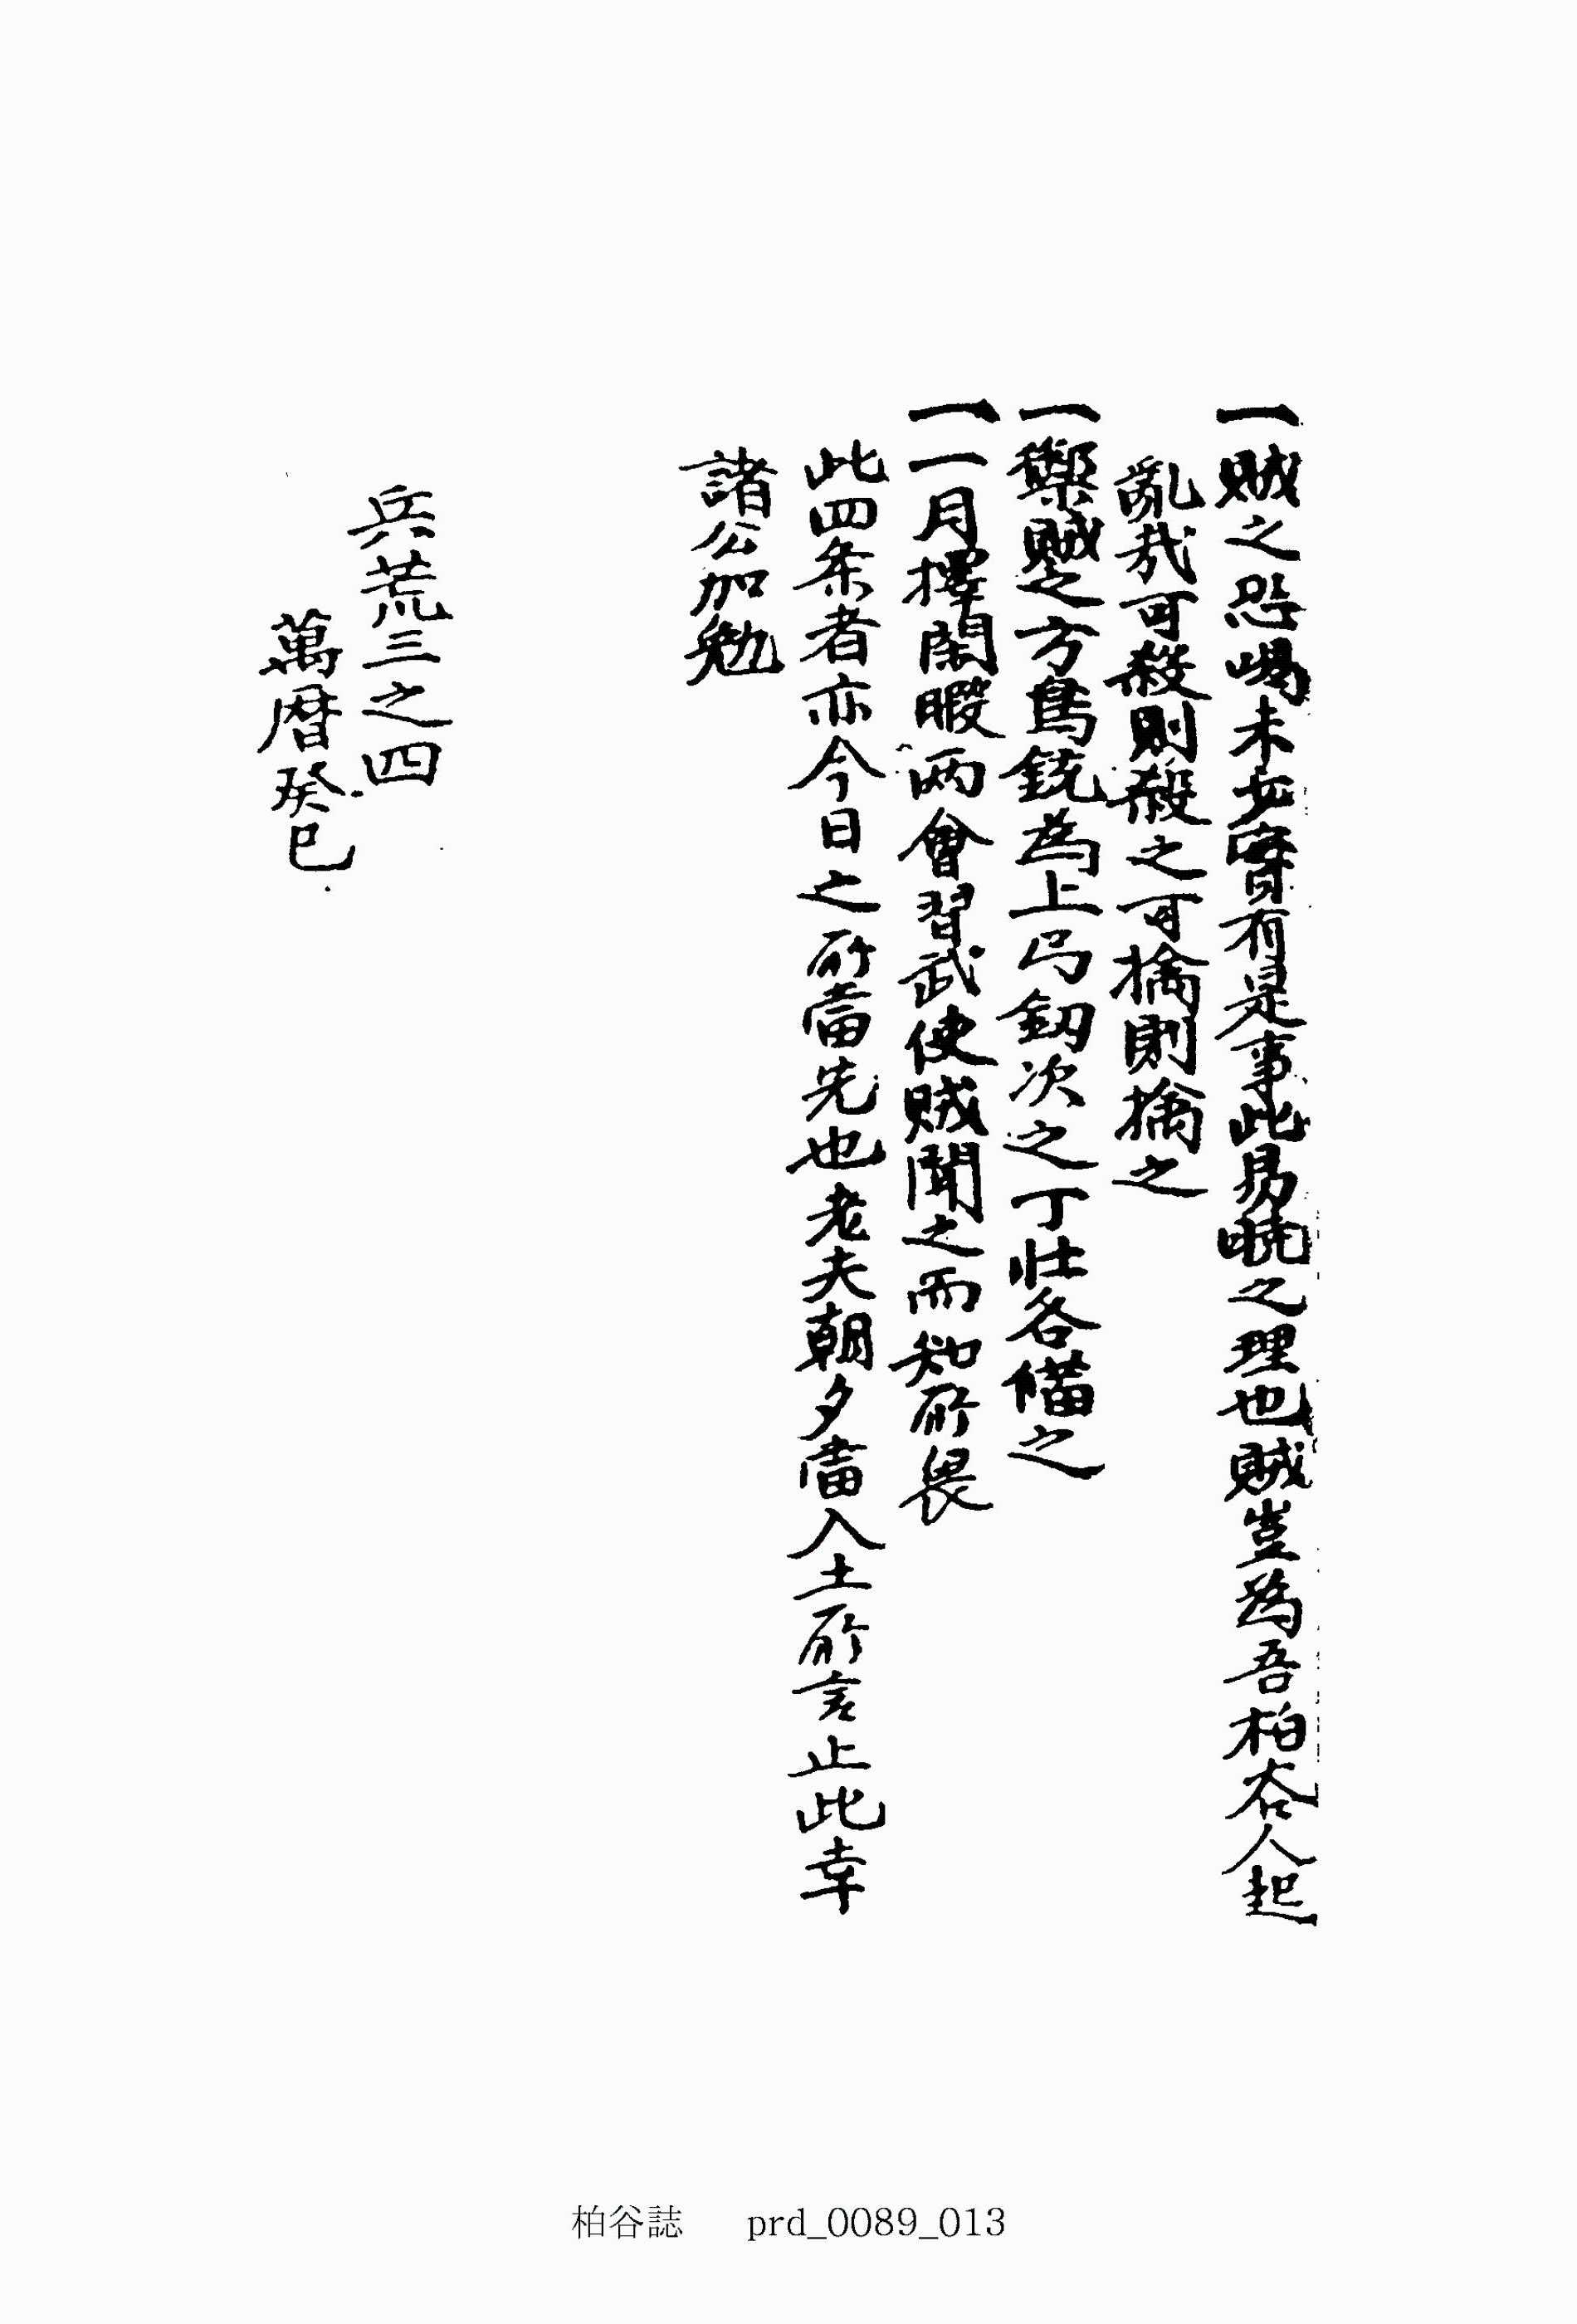 一賊之恐喝未必實有是事此易曉之理也賊豈爲吾柏谷人起
亂哉可殺則殺之可擒則擒之
一禦賊之方鳥銃爲上弓釰次之丁壯各備之
一一月擇閑暇两會習武使賊聞之而知所畏
此四条者亦今日之所當先也老夫朝夕當入土所言止此幸
諸公加勉
兵荒三之四
萬曆癸巳
柏谷誌 prd_0089_013